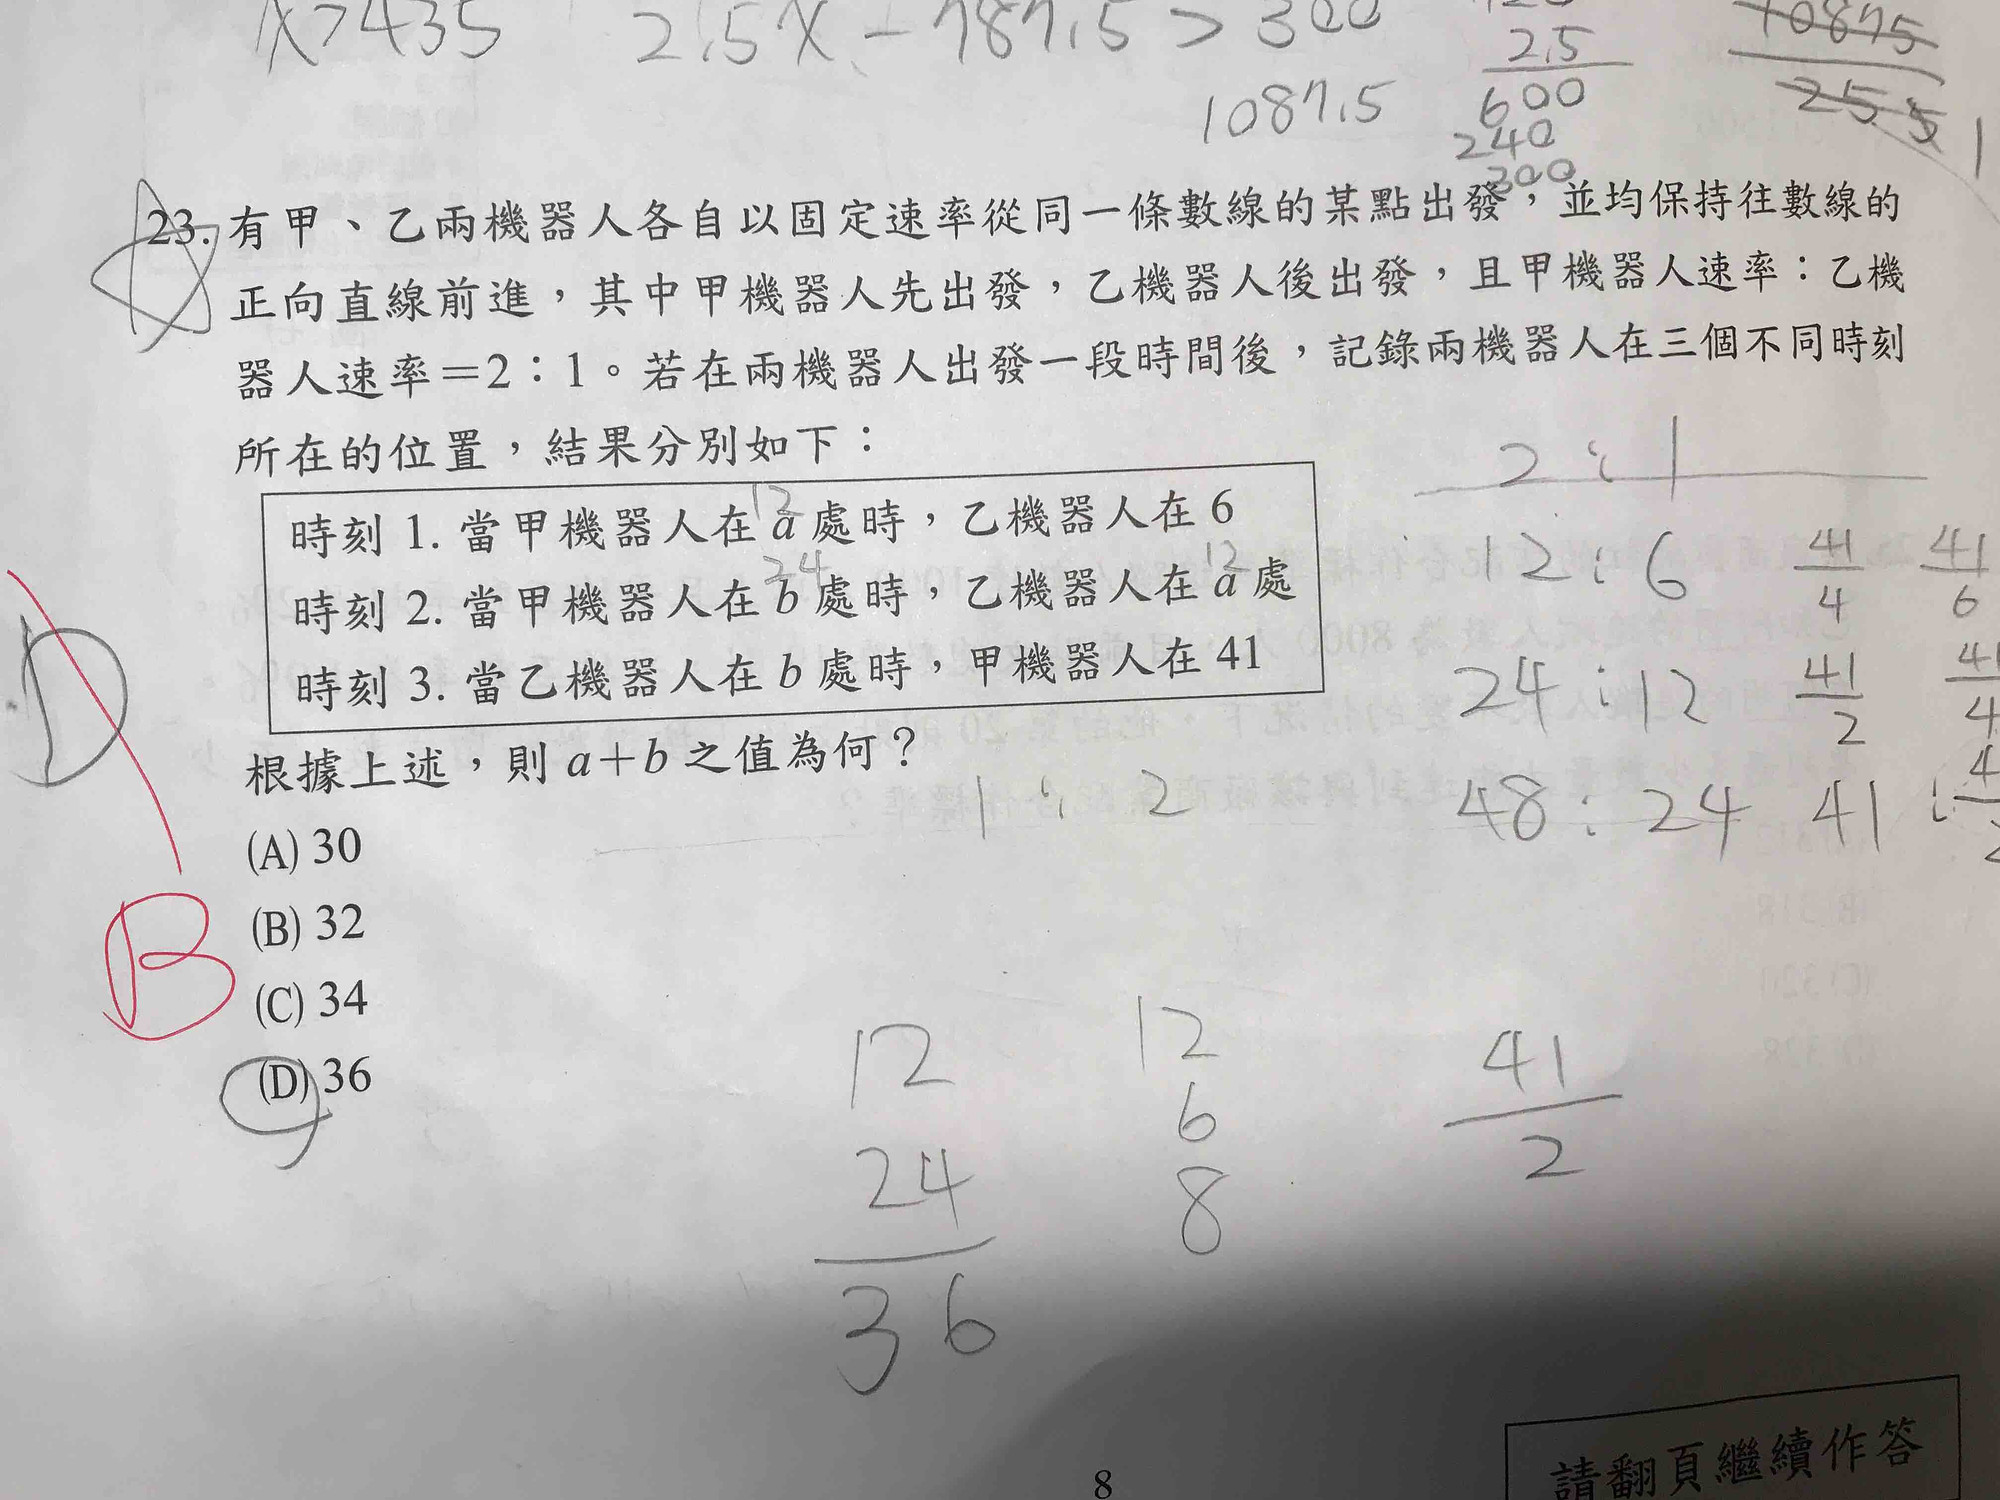 x>435 2.5x-787.5>300
2.5
600
240
300
1087.5
10875
25.5
1
23. 有甲、乙兩機器人各自以固定速率從同一條數線的某點出發，並均保持往數線的
正向直線前進，其中甲機器人先出發，乙機器人後出發，且甲機器人速率：乙機
器人速率＝2：1。若在兩機器人出發一段時間後，記錄兩機器人在三個不同時刻
所在的位置，結果分別如下：
2:1
12
時刻 1. 當甲機器人在 a 處時，乙機器人在 6
12:6 41/4 41/6
24 12
時刻 2. 當甲機器人在 b 處時，乙機器人在 a 處
時刻 3. 當乙機器人在 b 處時，甲機器人在 41
24:12 41/2
D
根據上述，則 a＋b 之值為何？
1:2 48:24 41:
(A) 30
B
(B) 32
(C) 34
(D) 36
12
24
36
12
6
8
41/2
8
請翻頁繼續作答